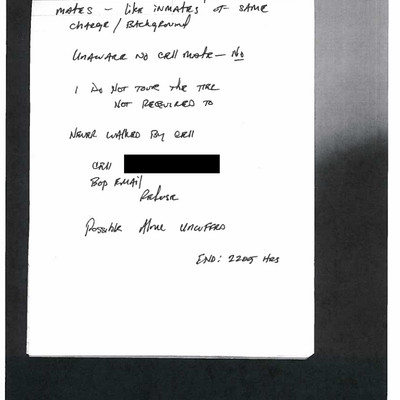 MATES - LIKE INMATES OF SAME
CHARGE / BACKGROUND
UNAWARE NO CELL MATE - NO
I DO NOT TOUR THE TIER
NOT REQUIRED TO
NEVER WALKED BY CELL
CELL
BOP EMAIL
Refuse
POSSIBLE Alone UNCUFFED
END: 2205 HRS